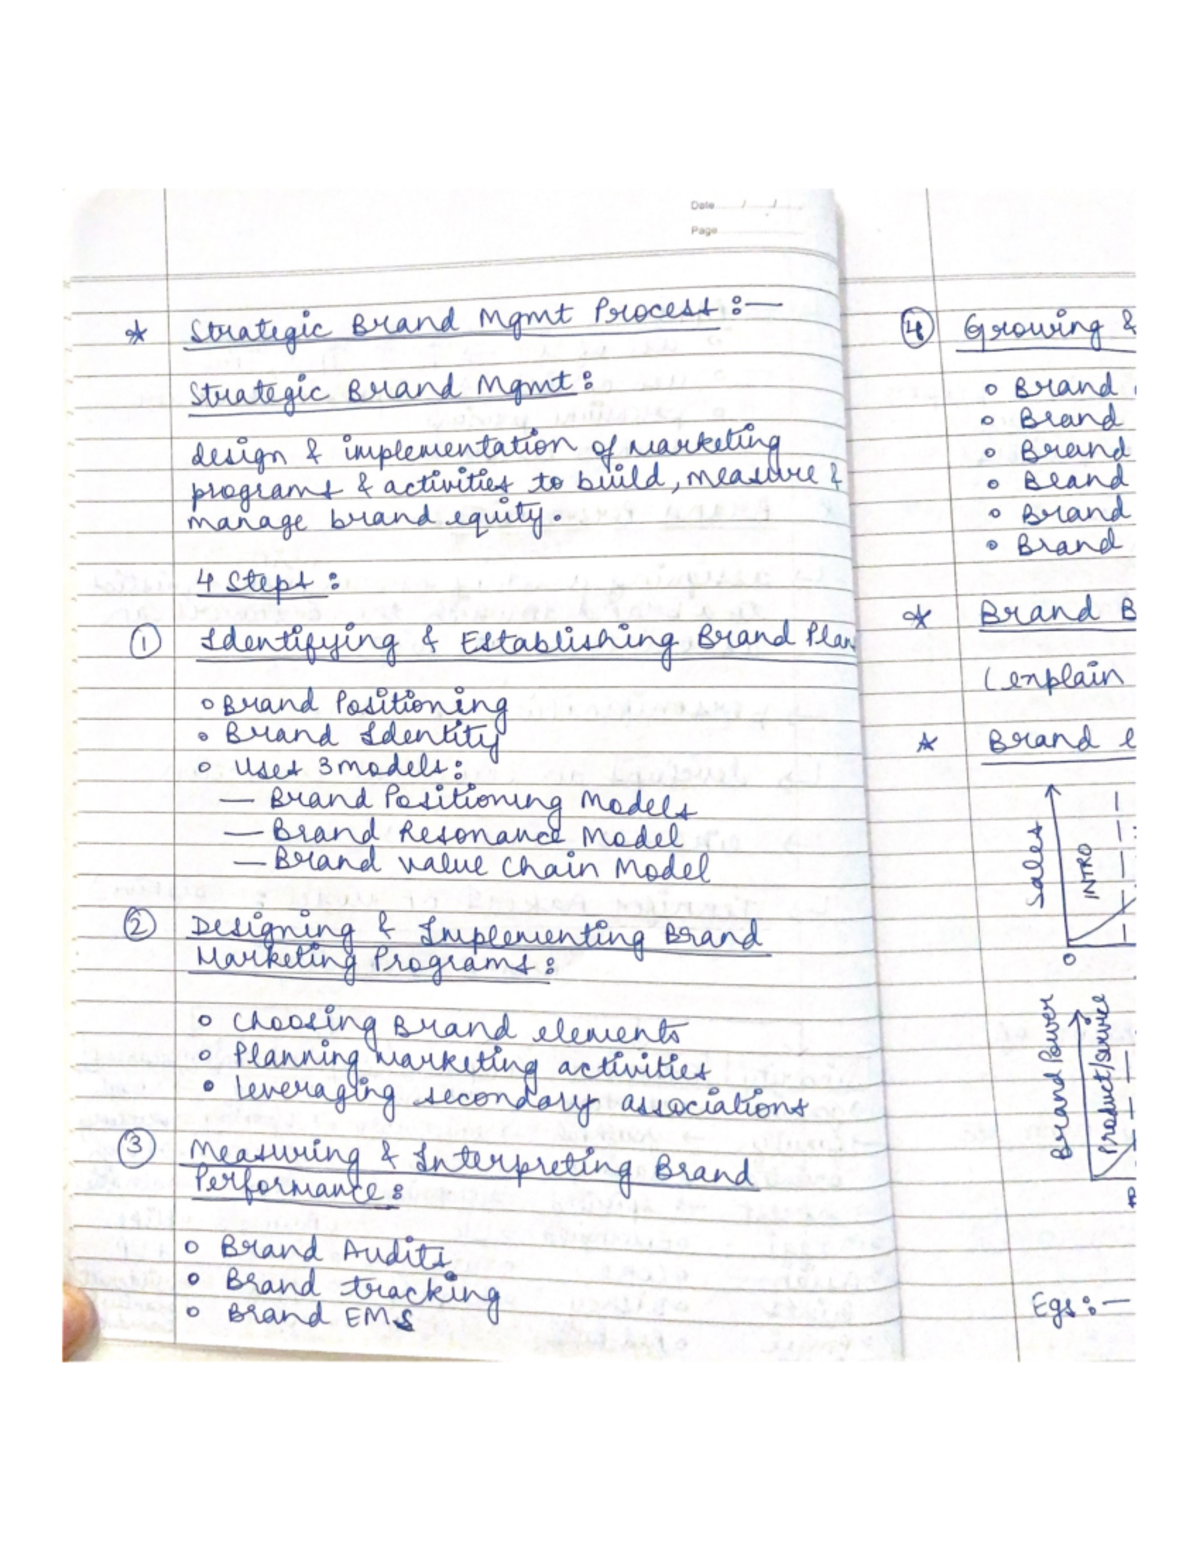 Date / /
Page
* Strategic Brand Mgmt Process :—
Strategic Brand Mgmt :
design & implementation of marketing
programs & activities to build, measure &
manage brand equity.
4 Steps :
① Identifying & Establishing Brand Plan
o Brand Positioning
o Brand Identity
o Uses 3 models :
— Brand Positioning Models
— Brand Resonance Model
— Brand Value Chain Model
② Designing & Implementing Brand
Marketing Programs :
o Choosing Brand elements
o Planning marketing activities
o Leveraging secondary associations
③ Measuring & Interpreting Brand
Performance :
o Brand Audits
o Brand tracking
o Brand EMS
④ Growing &
o Brand
o Brand
o Brand
o Brand
o Brand
o Brand
* Brand B
(explain
* Brand
Sales
INTRO
0
Brand Power
Product/Service
Egs :—